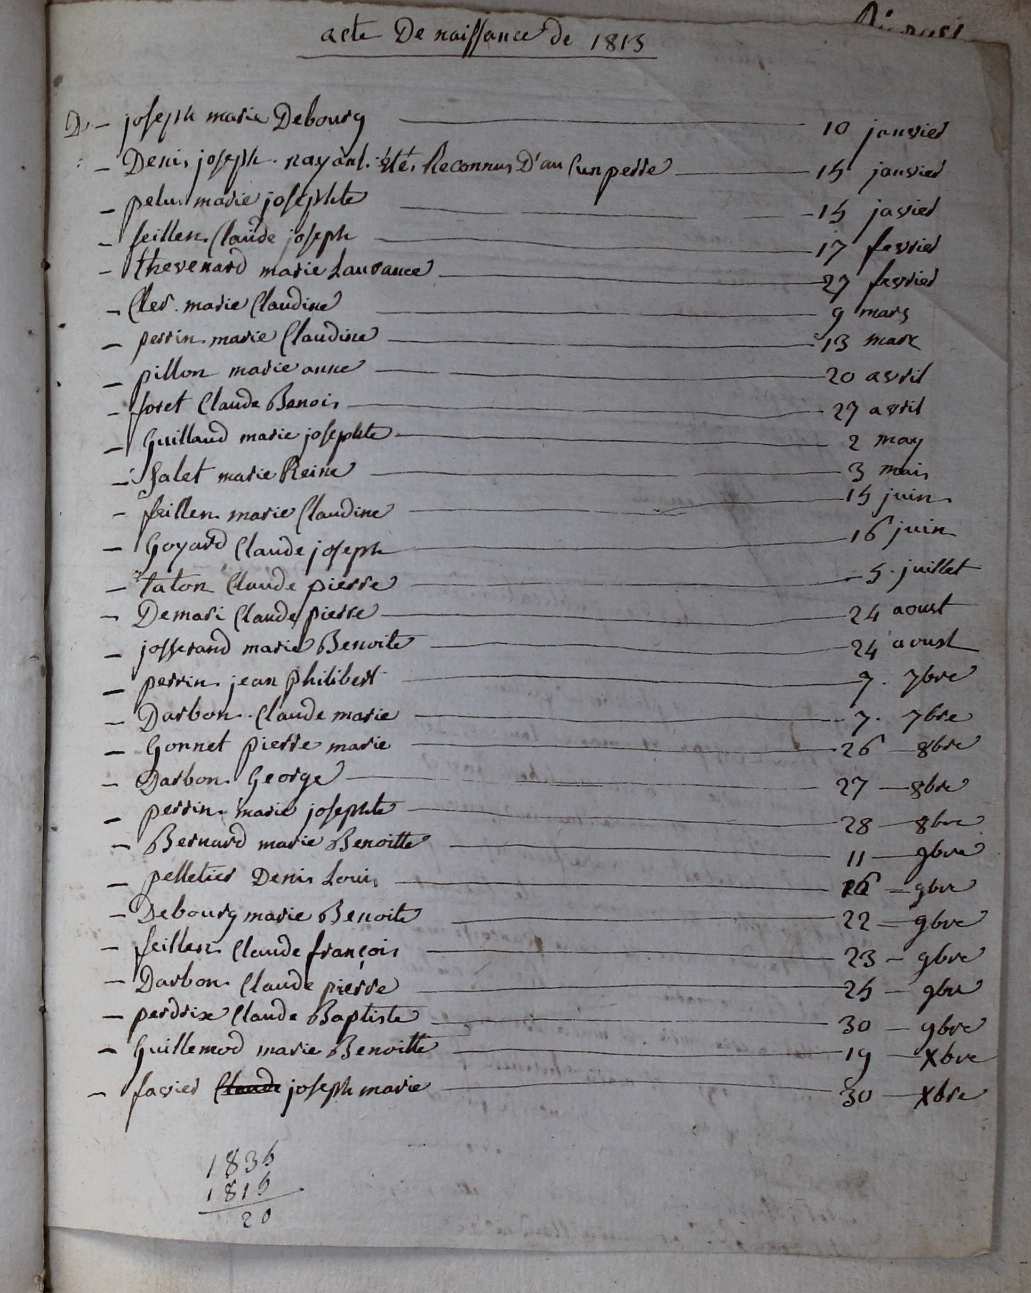 acte De naissance de 1815
D. – joseph marie Debourg — 10 janvier
– Denis joseph. nayant étés Reconnus D'aucun perre — 15 janvier
– pelu marie josephte — 15 javier
– feillen Claude joseph — 17 fevrier
– thevenard marie Laurance — 27 fevrier
– Cler. marie Claudine — 9 mars
– perrin. marie Claudine — 13 marx
– pillon marie anne — 20 avril
– foret Claude Benois — 27 avril
– Guillaud marie josephte — 2 may
– Salet marie Reine — 3 mais
– feillen. marie Claudine — 15 juin
– Goyard Claude joseph — 16 juin
– talon Claude pierre — 5. juillet
– Demari Claude pierre — 24 aoust
– josserand marie Benoite — 24 avust
– perrin. jean philibert — 7. 7bre
– Darbon. Claude marie — 7. 7bre
– Gonnet pierre marie — 26 – 8bre
– Darbon. George — 27 – 8bre
– perrin. marie josephte — 28 – 8bre
– Bernard marie Benoitte — 11 – 9bre
– pelletier Denis Louis — 16 – 9bre
– Debourg marie Benoite — 22 – 9bre
– feillen Claude françois — 23 – 9bre
– Darbon. Claude pierre — 25 – 9bre
– perdrix Claude Baptiste — 30 – 9bre
– Guillemod marie Benoitte — 19 – Xbre
– favier Claude joseph marie — 30 – Xbre
1836
1816
20